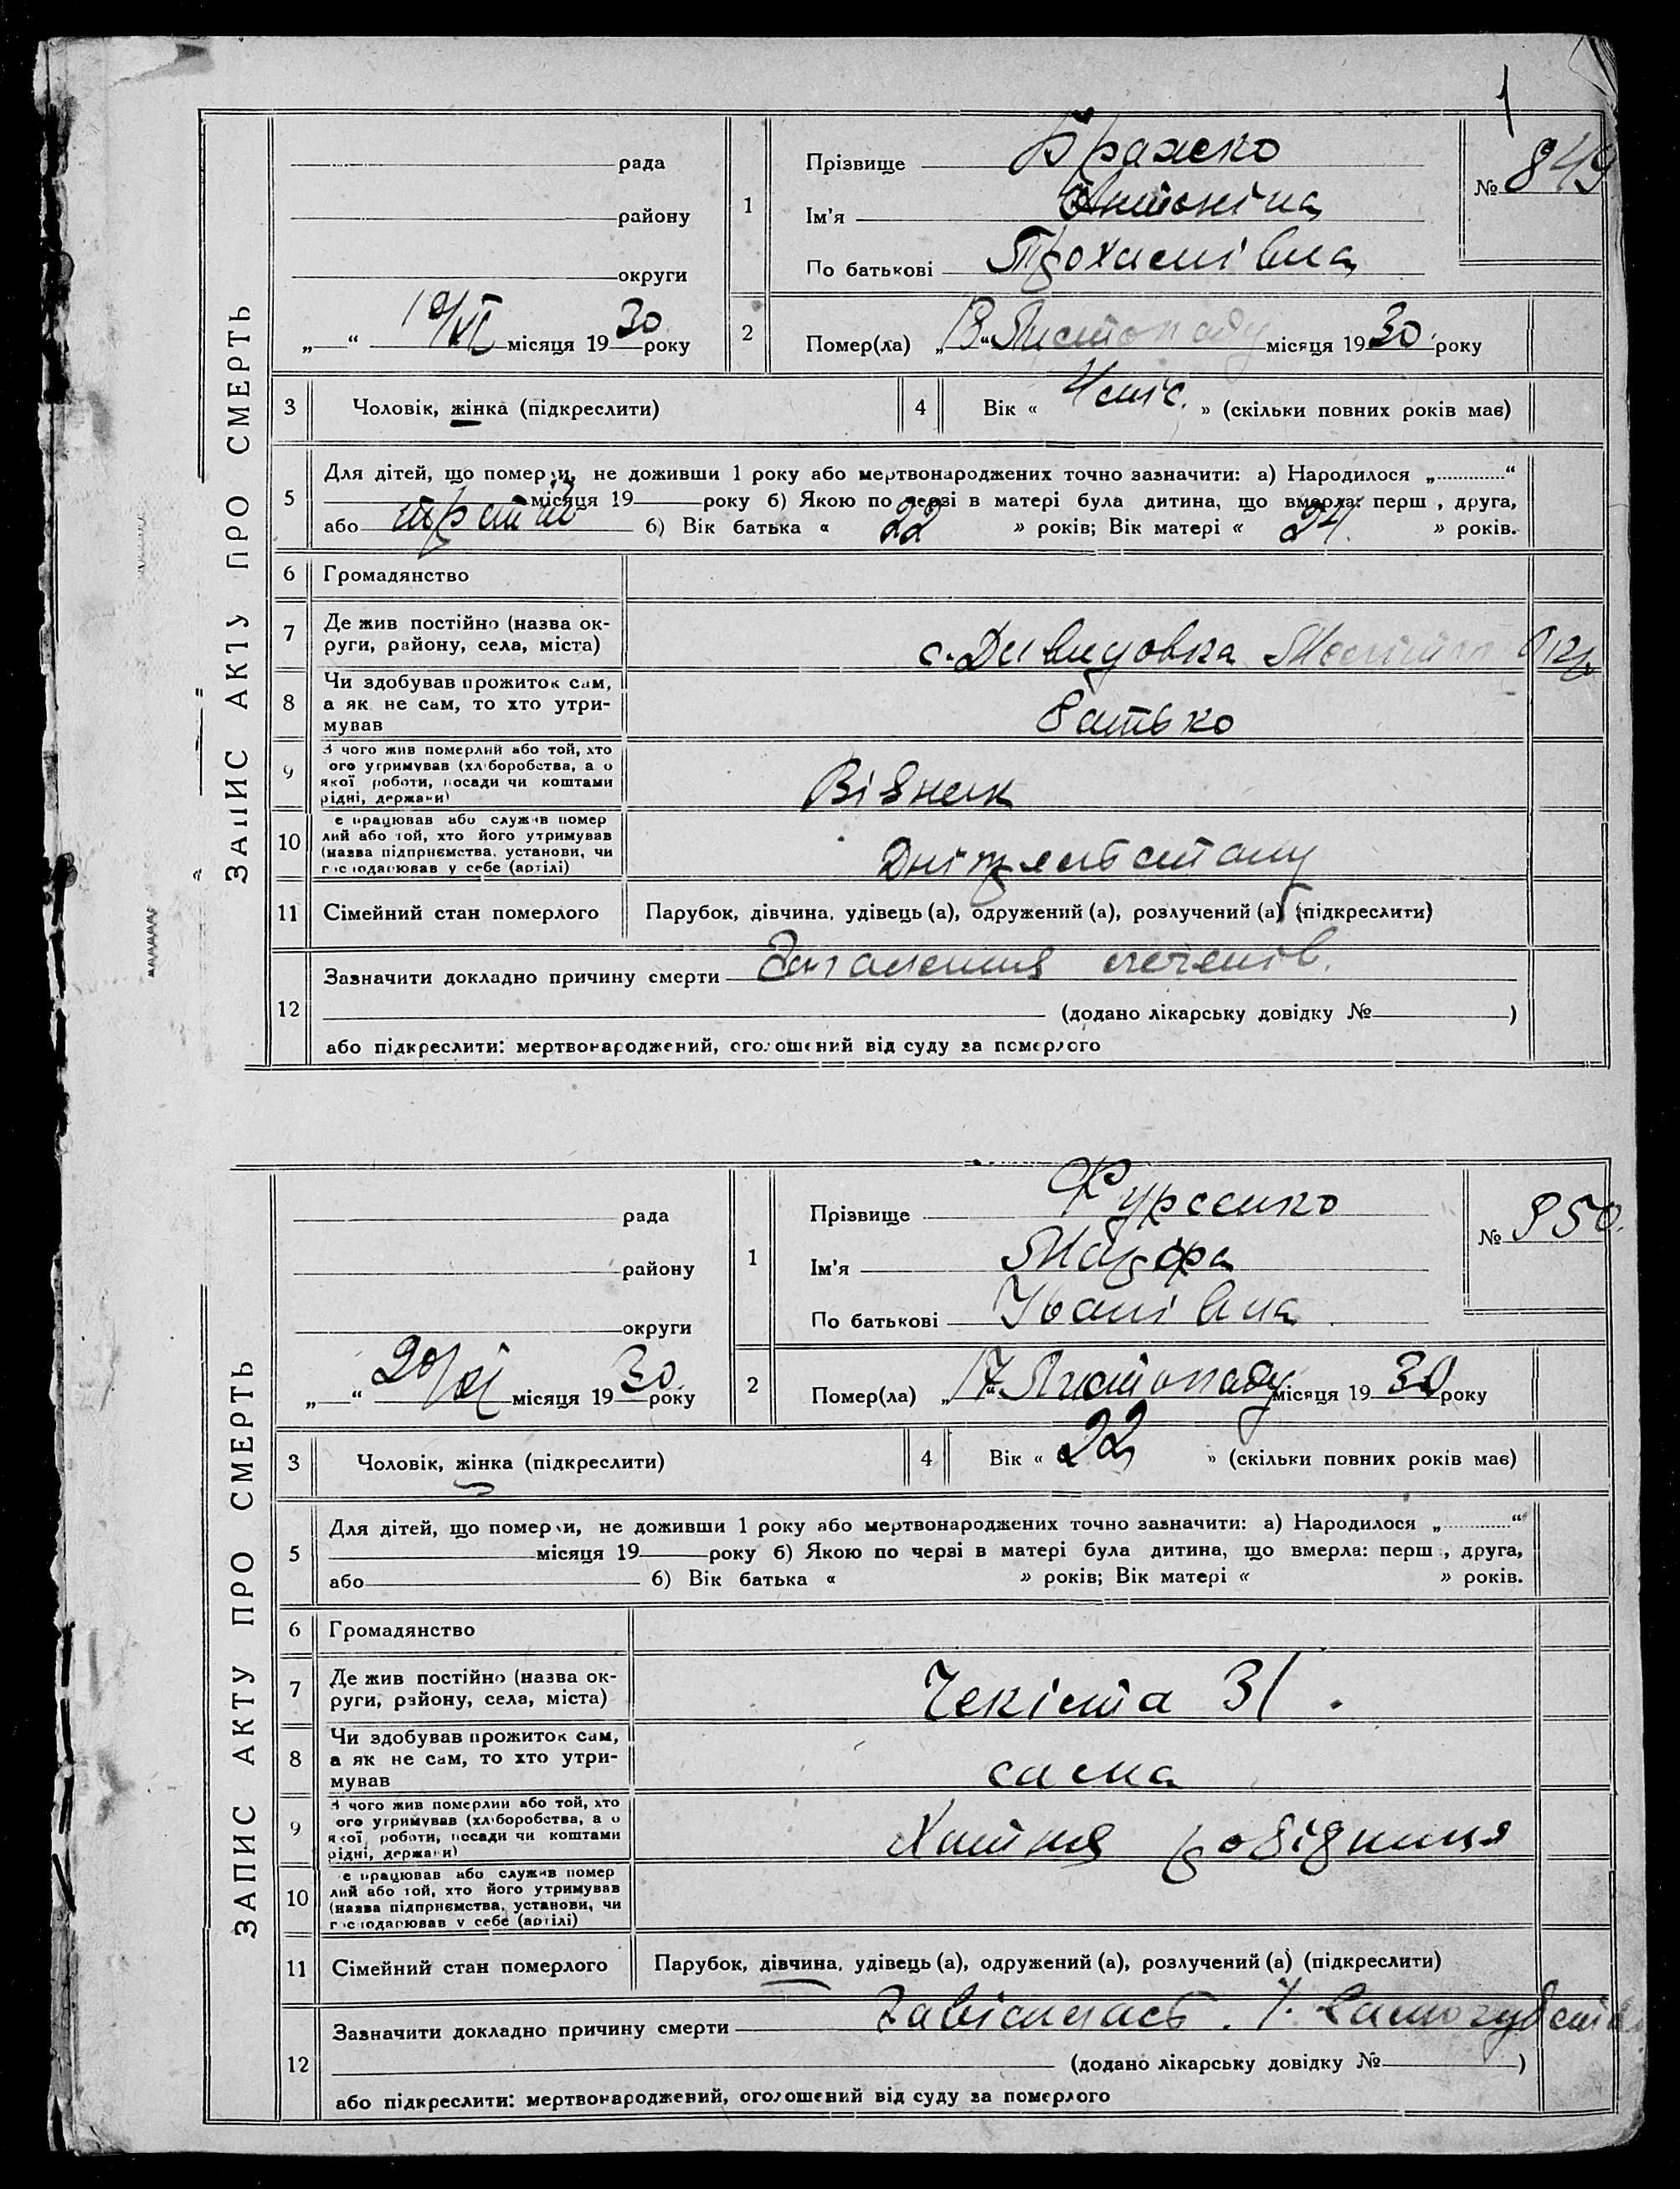 1
ЗАПИС АКТУ ПРО СМЕРТЬ
рада
району
округи
„ “ 19/XI місяця 1930 року
1
Прізвище Бражко
Ім'я Антоніна
По батькові Трохимівна
№ 849
2
Помер(ла) „ “ Листопаду місяця 1930 року
3
Чоловік, жінка (підкреслити)
4
Вік « 4 міс. » (скільки повних років має)
5
Для дітей, що померли, не доживши 1 року або мертвонароджених точно зазначити: а) Народилося „ “
місяця 19 року б) Якою по черзі в матері була дитина, що вмерла: перш , друга,
або третьй б) Вік батька « 22 » років; Вік матері « 24. » років.
6
Громадянство
7
Де жив постійно (назва ок-
руги, району, села, міста)
с. Окр.
8
Чи здобував прожиток сам,
а як не сам, то хто утри-
мував
батько
9
З чого жив померлий або той, хто
ого утримував (хліборобства, а о
якої роботи, посади чи коштами
рідні, держави)
Візник
10
е працював або служив помер
лий або той, хто його утримував
(назва підприємства, установи, чи
господарював у себе (артілі)
11
Сімейний стан померлого
Парубок, дівчина, удівець (а), одружений (а), розлучений (а) (підкреслити)
12
Зазначити докладно причину смерти Запалення легенів.
(додано лікарську довідку № )
або підкреслити: мертвонароджений, оголошений від суду за померлого
ЗАПИС АКТУ ПРО СМЕРТЬ
рада
району
округи
„ “ 20/XI місяця 1930 року
1
Прізвище Фурсенко
Ім'я Мотря
По батькові Іванівна
№ 850.
2
Помер(ла) „17“ Листопаду місяця 1930 року
3
Чоловік, жінка (підкреслити)
4
Вік « 22 » (скільки повних років має)
5
Для дітей, що померли, не доживши 1 року або мертвонароджених точно зазначити: а) Народилося „ “
місяця 19 року б) Якою по черзі в матері була дитина, що вмерла: перш , друга,
або б) Вік батька « » років; Вік матері « » років.
6
Громадянство
7
Де жив постійно (назва ок-
руги, району, села, міста)
Чекіста 31.
8
Чи здобував прожиток сам,
а як не сам, то хто утри-
мував
сама
9
З чого жив померлий або той, хто
ого утримував (хліборобства, а о
якої роботи, посади чи коштами
рідні, держави)
Хатня робідниця
10
е працював або служив помер
лий або той, хто його утримував
(назва підприємства, установи, чи
господарював у себе (артілі)
11
Сімейний стан померлого
Парубок, дівчина, удівець (а), одружений (а), розлучений (а) (підкреслити)
12
Зазначити докладно причину смерти Завісилась.
(додано лікарську довідку № )
або підкреслити: мертвонароджений, оголошений від суду за померлого